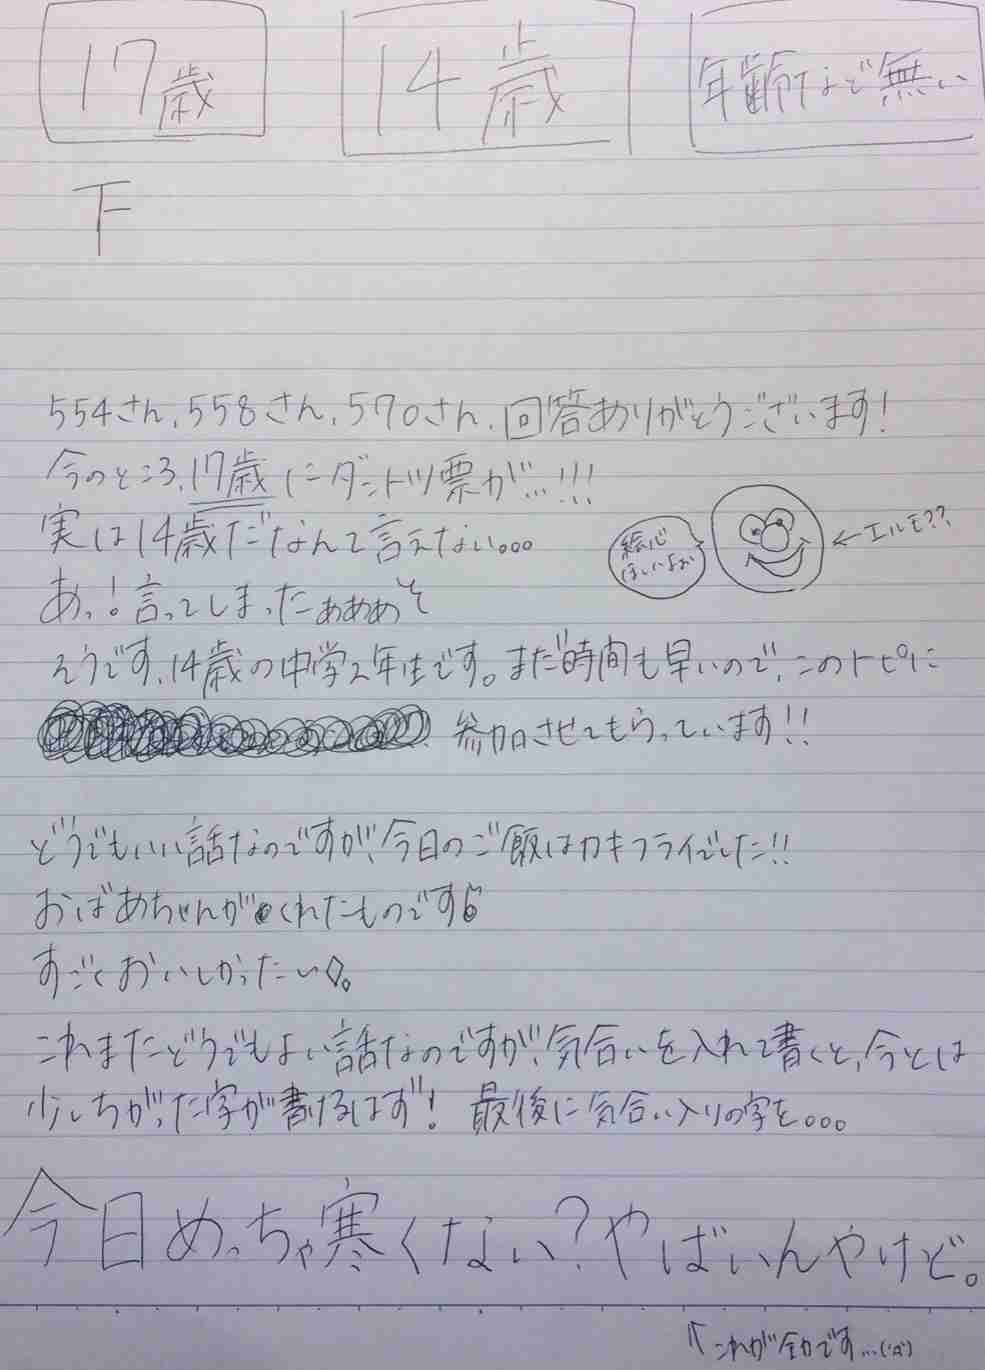 17歳 14歳 年齢など無い
下
554さん、558さん、570さん、回答ありがとうございます!
今のところ、17歳にダントツ票が...!!!
実は14歳だなんて言えない。。。
絵心
ほしいよぉ
←エルモ??
あっ!言ってしまったぁぁぁ
そうです、14歳の中学2年生です。まだ時間も早いので、このトピに
参加させてもらっています!!
どうでもいい話なのですが、今日のご飯はカキフライでした!!
おばあちゃんがくれたものです
すごくおいしかったい
これまたどうでもよい話なのですが、気合いを入れて書くと、今とは
少しちがった字が書けるはず! 最後に気合い入りの字を。。。
今日めっちゃ寒くない?やばいんやけど。
これが全力です...